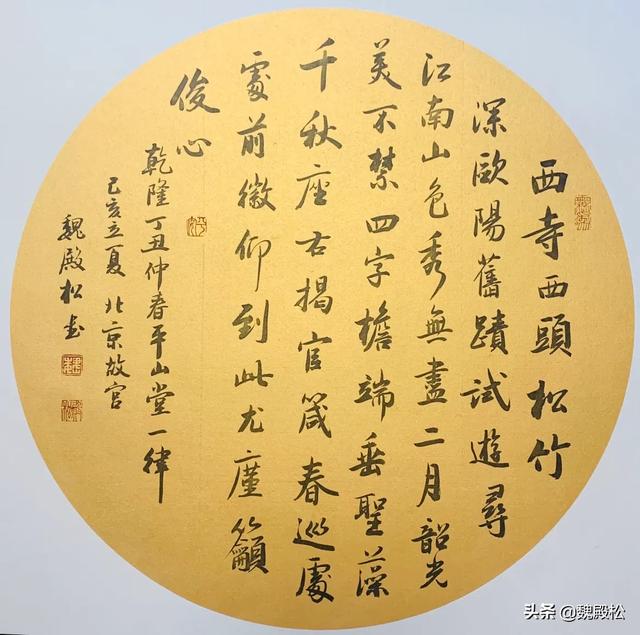 西寺西頭松竹
深歐陽舊蹟試遊尋
江南山色秀無盡二月韶光
美不禁四字檐端垂聖藻
千秋座右揭官箴春巡處
處前徽仰到此尤廑籲
俊心
乾隆丁丑仲春平山堂一律
己亥立夏北京故宮
魏殿松書
头条 @魏殿松